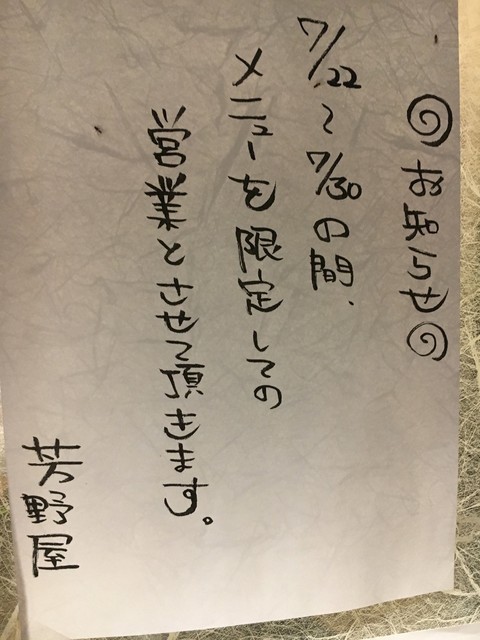 お知らせ
7/22〜7/30の間、
メニューを限定しての
営業とさせて頂きます。
芳野屋